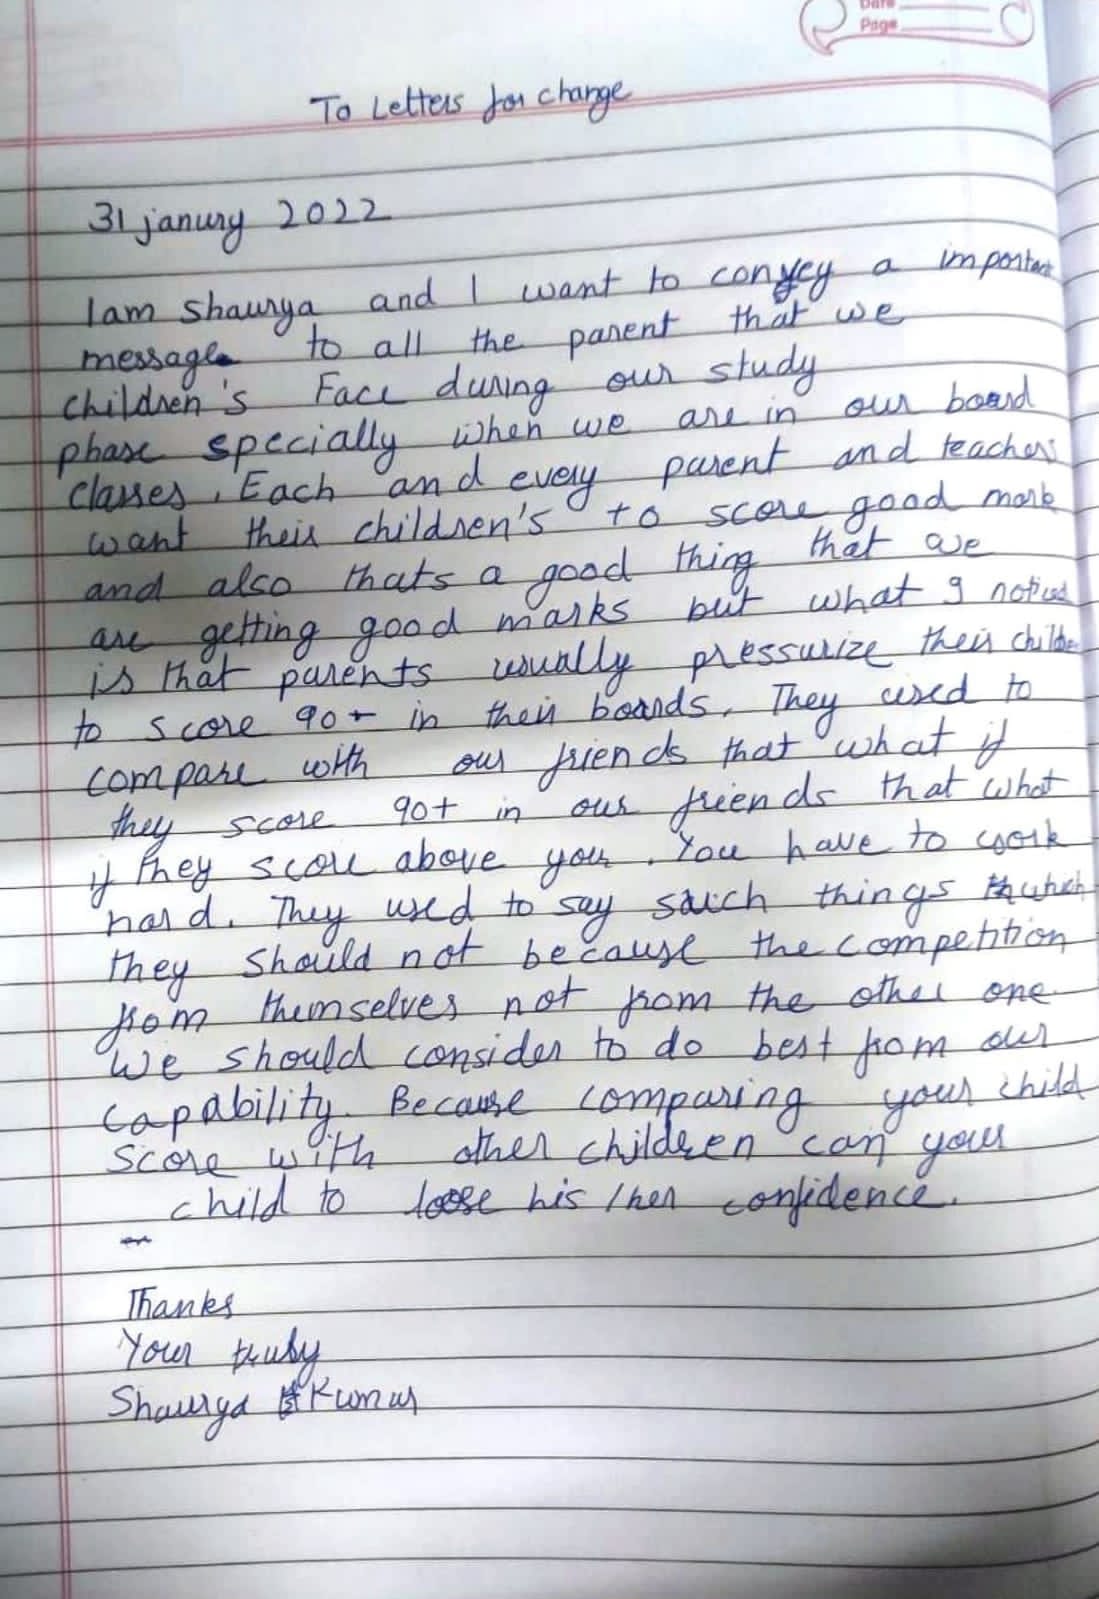 Date
Page
To Letters for change
31 janury 2022
I am Shaurya and I want to convey a important
message to all the parent that we
children's Face during our study
phase specially when we are in our board
classes. Each and every parent and teachers
want their children's to score good mark
and also thats a good thing that we
are getting good marks but what I noticed
is that parents usually pressurize their children
to score 90+ in their boards. They used to
compare with our friends that what if
they score 90+ in our friends that what
if they score above you. You have to work
hard. They used to say such things which
they should not because the competition
from themselves not from the other one
We should consider to do best from our
capability. Because comparing your child
score with other children can your
child to loose his/her confidence.
Thanks
Your truly
Shaurya Kumar